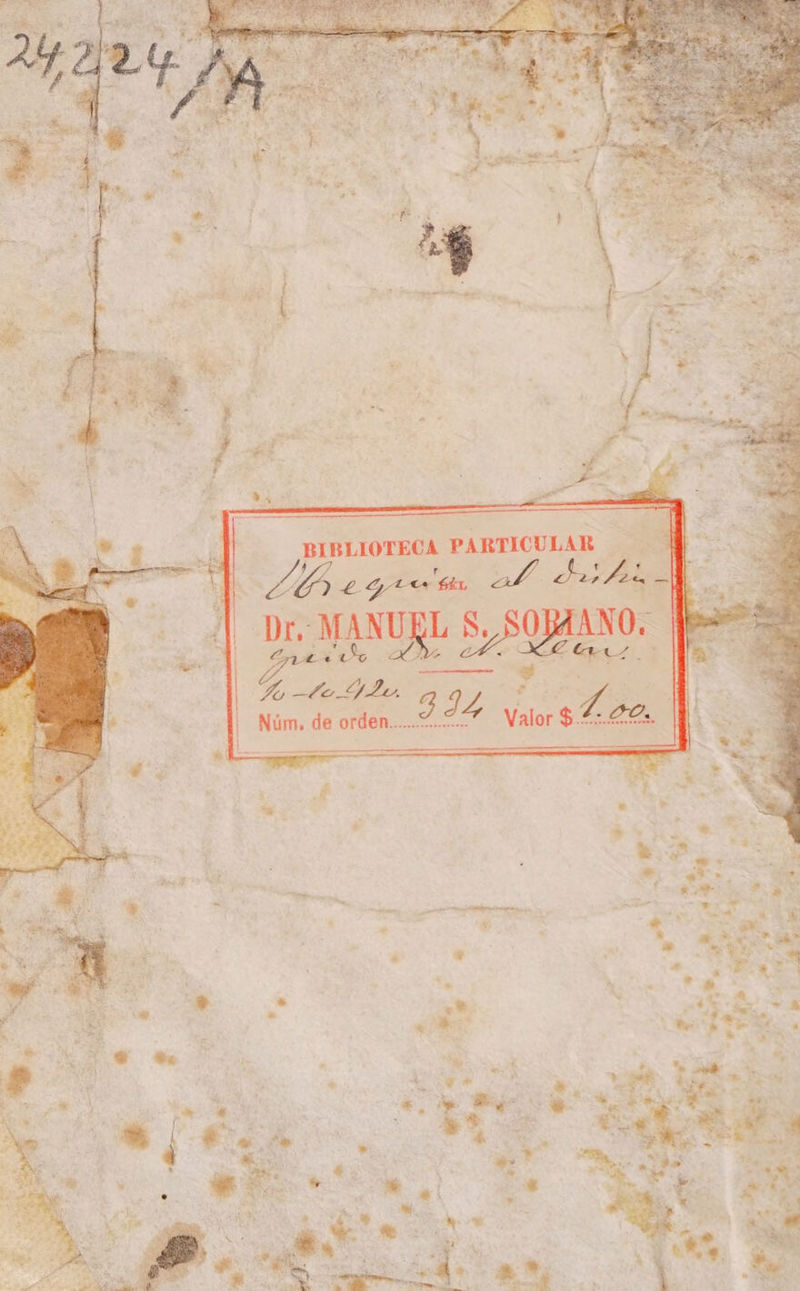 24,224/A
BIBLIOTECA PARTICULAR
Obsequio al distin-
Dr. MANUEL S. SORIANO.
guido Dr. N. León
Núm. de orden 334 Valor $ 1.00.